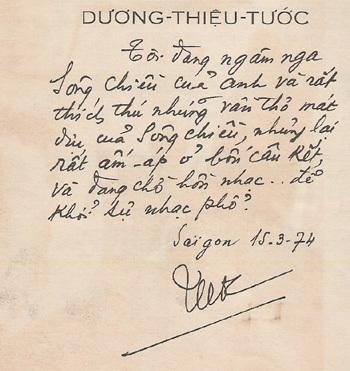 DƯƠNG-THIỆU-TƯỚC
Tôi đang ngâm nga
Sông chiều của anh và rất
thích thú những vần thơ mát
dịu của Sông chiều, nhưng lại
rất ấm-áp ở bốn câu kết,
và đang chờ hồn nhạc... để
khởi sự nhạc phổ?
Saigon 15-3-74